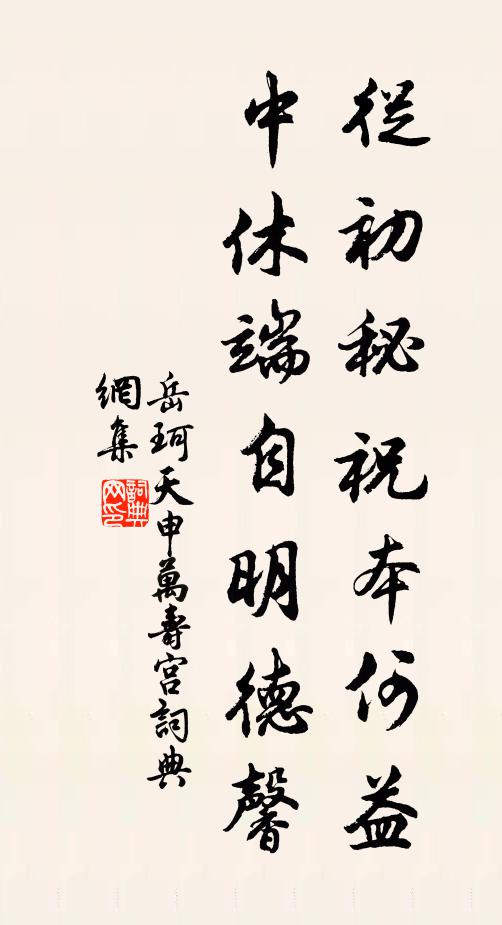 從初秘祝本何益
中休端自明德馨
岳珂天申萬壽宮詞典
網集
詞典
網印